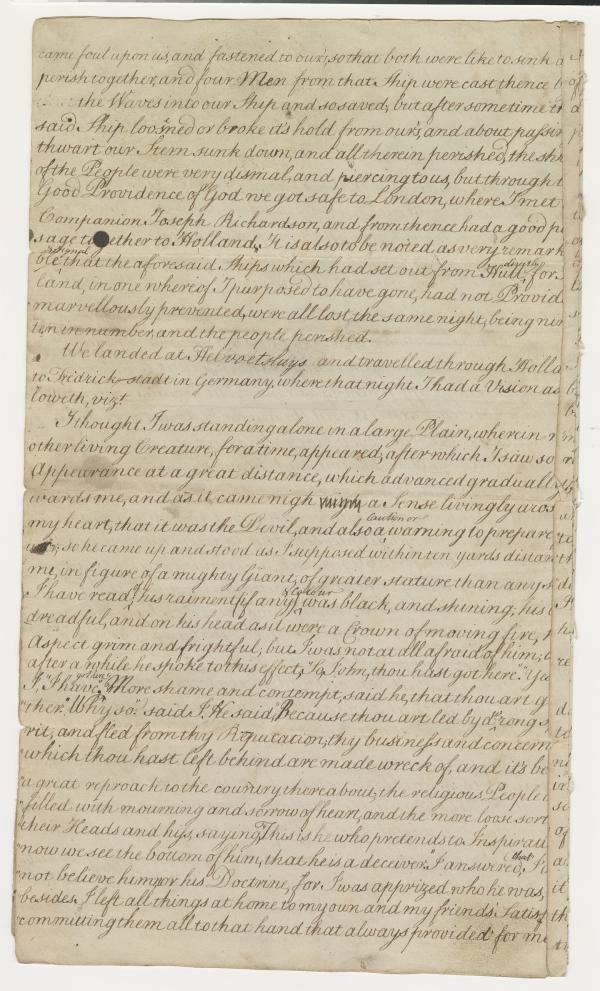 came foul upon us, and fastened to ours, so that both were like to sink a
perish together, and four Men from that Ship were cast thence b
the Waves into our Ship and so saved; but after sometime th
said Ship loos'ned or broke it's hold from our's, and about passin
thwart our Stern sunk down, and all therein perished, the shr
of the People were very dismal, and piercing to us, but through t
Good Providence of God we got safe to London, where I met
Companion Joseph Richardson, and from thence had a good p
sage together to Holland. It is also to be noted as very remark
ble, that the aforesaid Ships which had set out from Hull, for
land, in one whereof I purposed to have gone, had not Provid
marvellously prevented, were all lost the same night, being nin
ten in number, and the people perished.
We landed at Helvoetsluys and travelled through Holla
to Fredrick-stadt in Germany, where that night I had a Vision as
loweth, vizt.
I thought I was standing alone in a large Plain, wherein n
other living Creature, for a time, appeared; after which I saw so
Appearance at a great distance, which advanced gradually
wards me, and as it came nigh a Sense livingly aros
caution or
my heart, that it was the Devil, and also a warning to prepare
so he came up and stood as I supposed within ten yards distan
me, in figure of a mighty Giant, of greater stature than any
& Colour
I have read of; his raiment if any was black, and shining; his
dreadful, and on his head as it were a Crown of moving fire,
Aspect grim and frightful; but I was not at all afraid of him;
after a while he spoke to this effect, "So, John, thou hast got here." "Yea
I, "I have." "More shame and contempt, said he, that thou art g
ther." "Why so?" said I. He said, "Because thou art led by a wrong s
rit, and fled from thy Reputation; thy business and concern
which thou hast left behind are made wreck of, and it's be
a great reproach to the country there about; the religious People
filled with mourning and sorrow of heart, and the more loose sort
their Heads and hiss, saying, This is he who pretends to Inspirati
that
now we see the bottom of him, that he is a deceiver." I answered, I
not believe him, or his Doctrine, for I was apprized who he was,
besides I left all things at home to my own and my friends' Satisf
committing them all to that hand that always provided for me